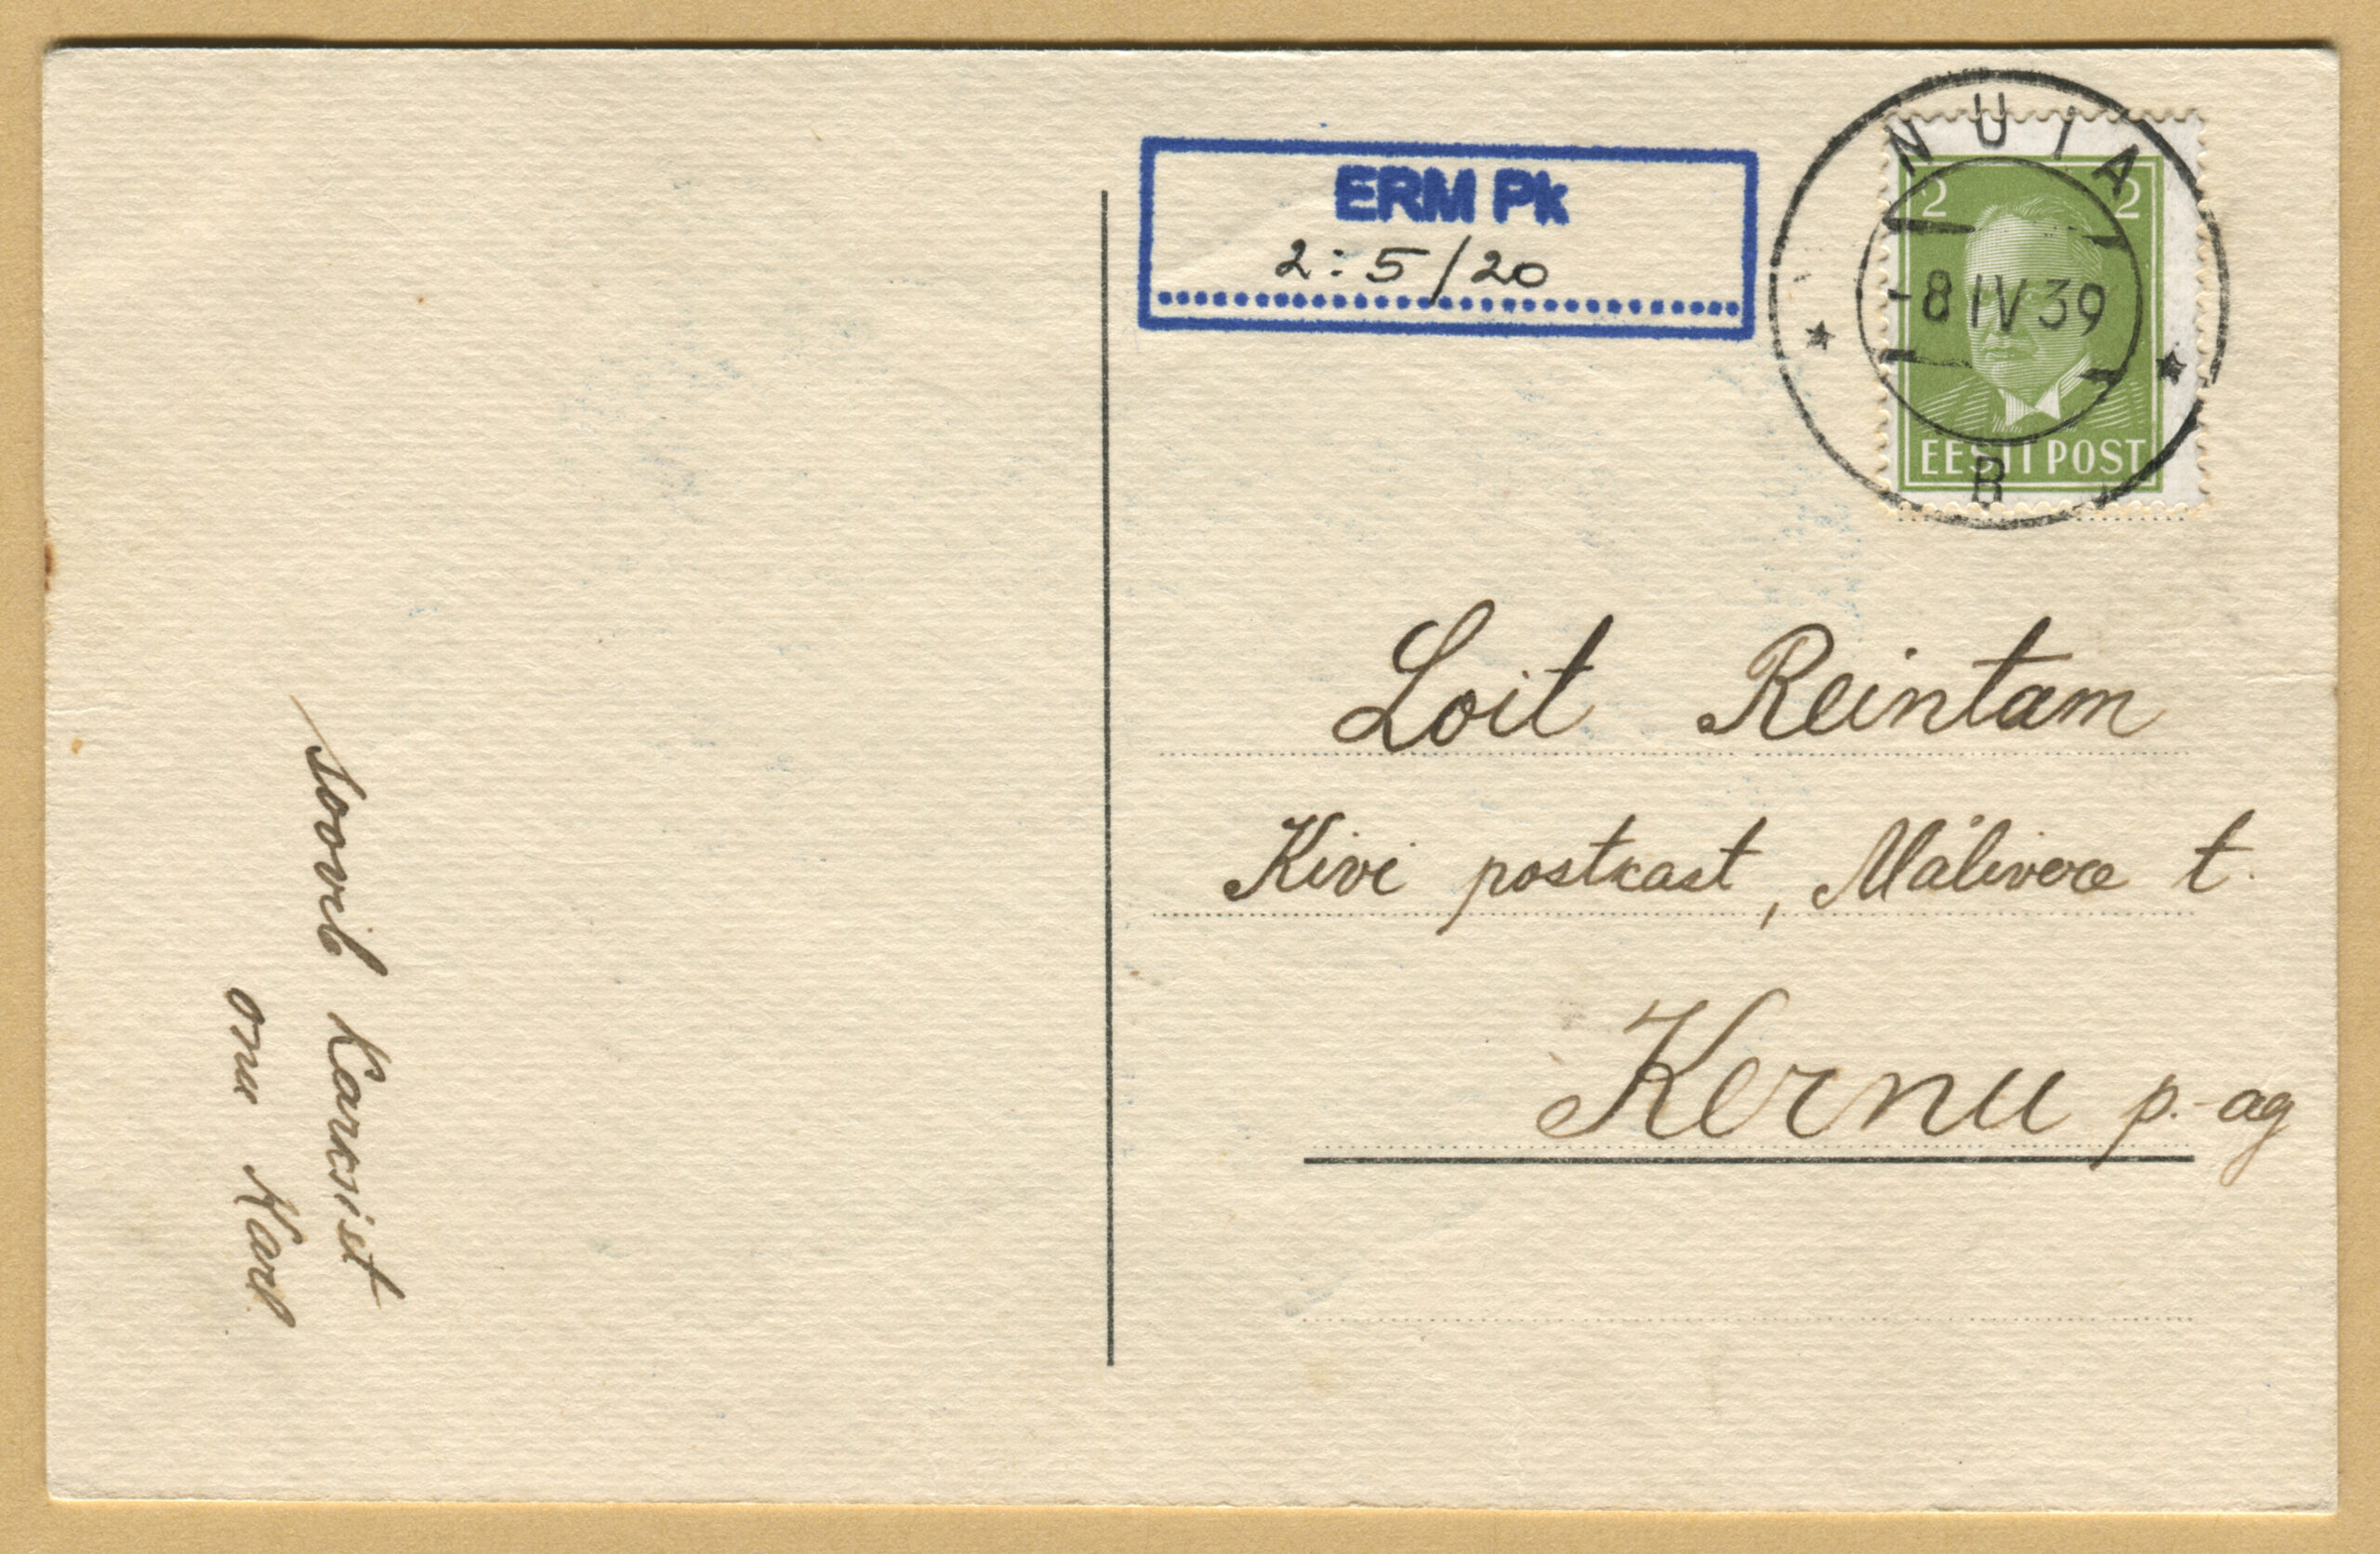 soovib Karksist
onu Karl
ERM Pk
2:5/20
NUIA
2 2
-8 IV 39
EESTI POST
B
Loit Reintam
Kivi postkast, Mälivere t.
Kernu p.-ag